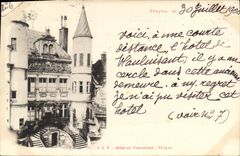 Troyes, le 30 Juillet 190
voici, à une courte
distance, l'hôtel de
Vauluisant. il y a un
cercle dans cette ancienne
demeure. à mon regret
je n'ai pu visiter cet
hôtel
(voir no 7)
Hôtel de Vauluisant. - Troyes